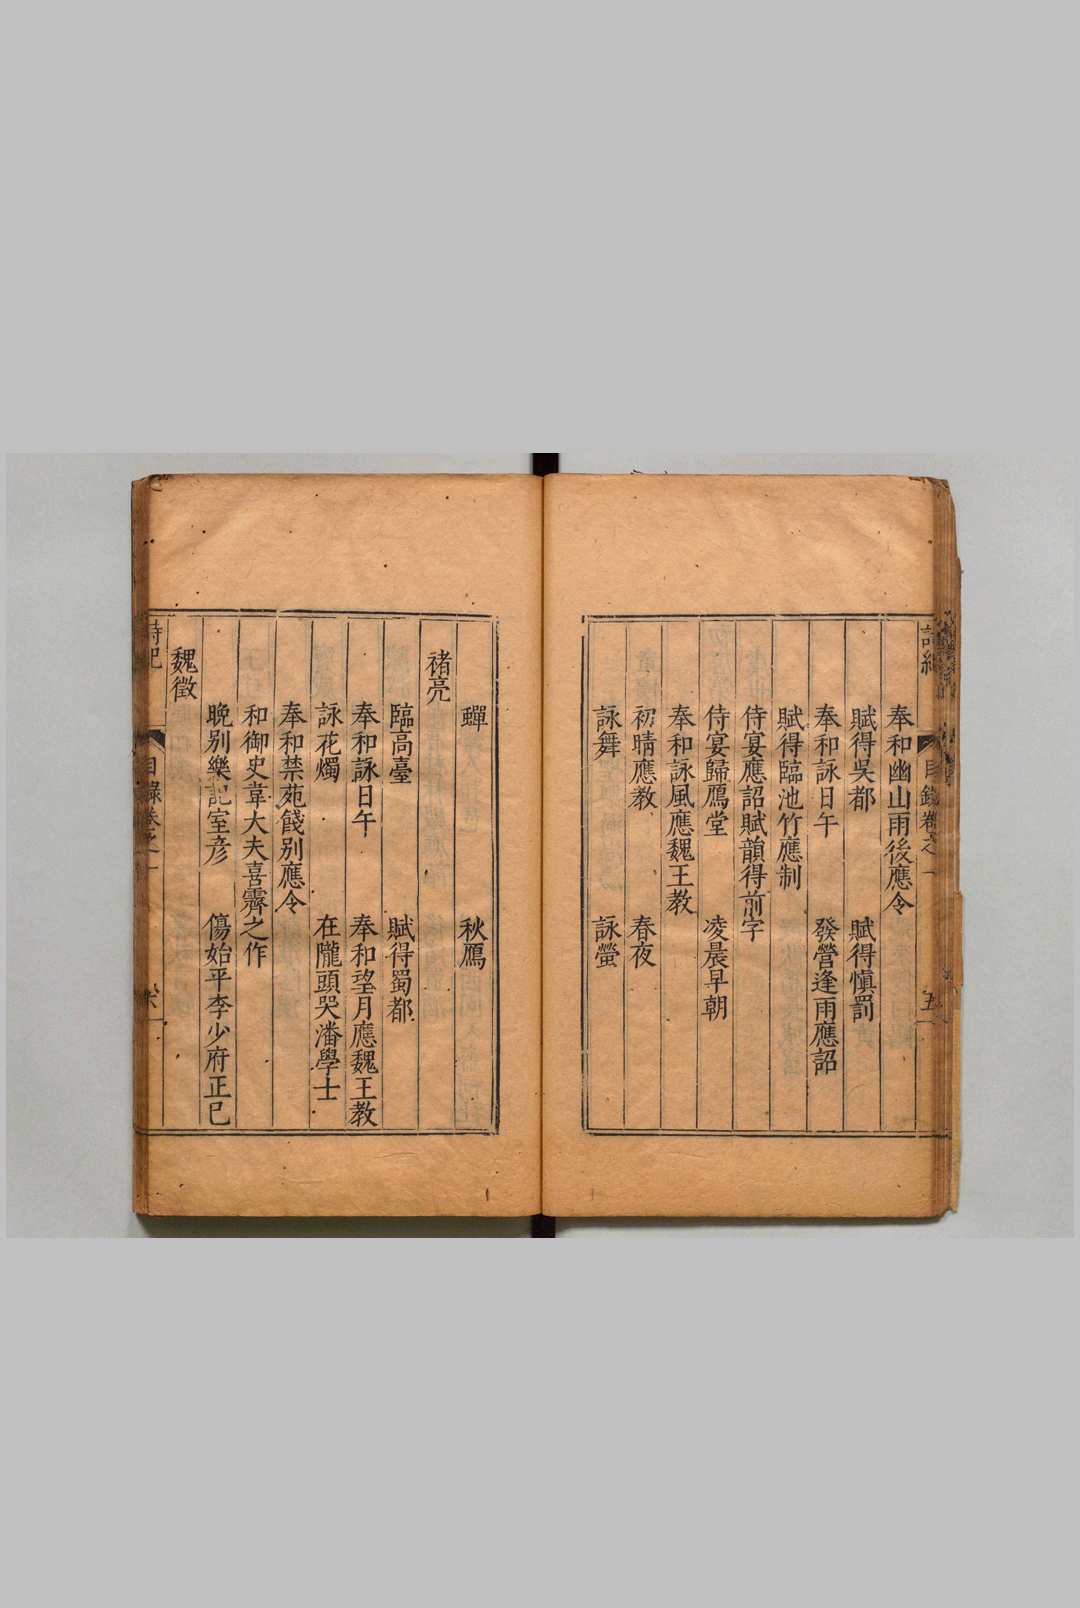 目錄卷之一 五
奉和幽山雨後應令
賦得吳都 賦得慎罰
奉和詠日午 發營逢雨應詔
賦得臨池竹應制
侍宴應詔賦韻得前字
侍宴歸鴈堂 凌晨早朝
奉和詠風應魏王教
初晴應教 春夜
詠舞 詠螢
蟬 秋鴈
褚亮
臨高臺 賦得蜀都
奉和詠日午 奉和望月應魏王教
詠花燭 在隴頭哭潘學士
奉和禁苑餞别應令
和御史韋大夫喜霽之作
晚别樂記室彦 傷始平李少府正已
魏徵
詩紀 目録卷之一